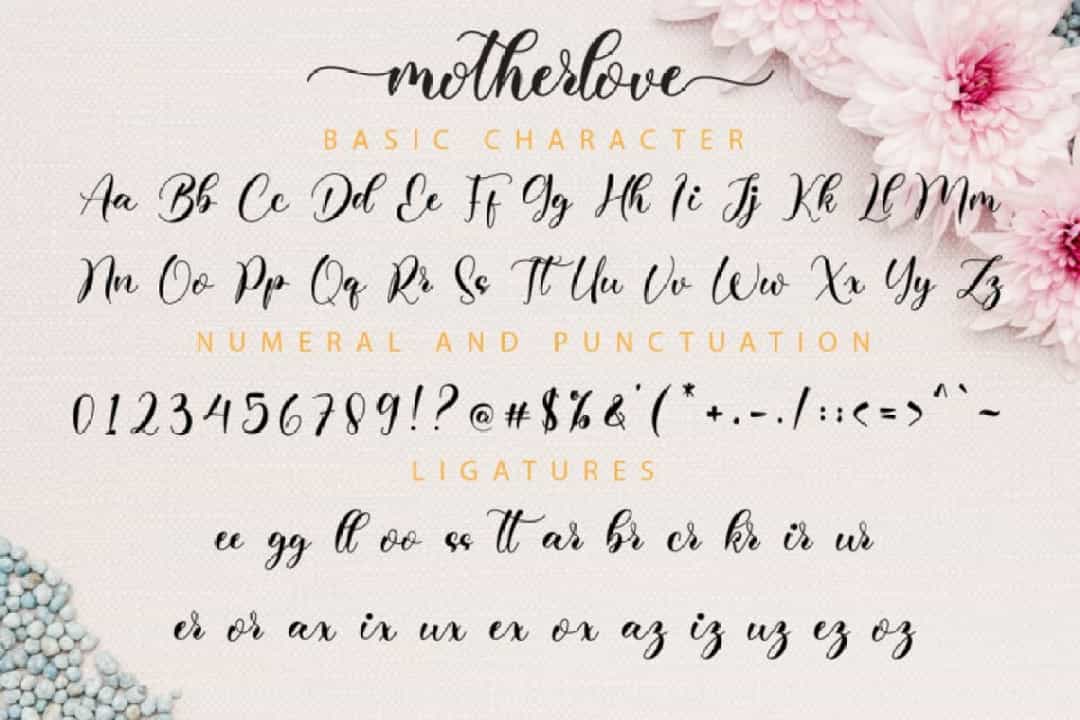 motherlove
BASIC CHARACTER
Aa Bb Cc Dd Ee Ff Gg Hh Ii Jj Kk Ll Mm
Nn Oo Pp Qq Rr Ss Tt Uu Vv Ww Xx Yy Zz
NUMERAL AND PUNCTUATION
0123456789!?@#$%&'(*+.-./::<=>^`~
LIGATURES
ee gg ll oo ss tt ar br cr kr ir ur
er or ax ix ux ex ox az iz uz ez oz